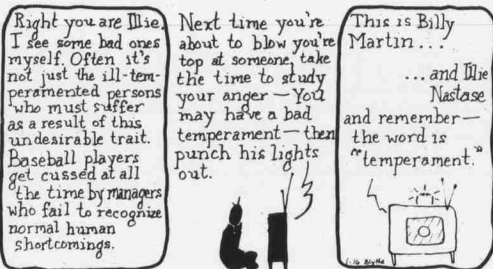 Right you are Illie,
I see some bad ones
myself. Often it's
not just the ill-tem-
peramented persons
who must suffer
as a result of this
undesirable trait.
Baseball players
get cussed at all
the time by managers
who fail to recognize
normal human
shortcomings.
Next time you're
about to blow you're
top at someone, take
the time to study
your anger — You
may have a bad
temperament — then
punch his lights
out.
This is Billy
Martin...
...and Illie
Nastase
and remember —
the word is
"temperament."
1-16 Blythe